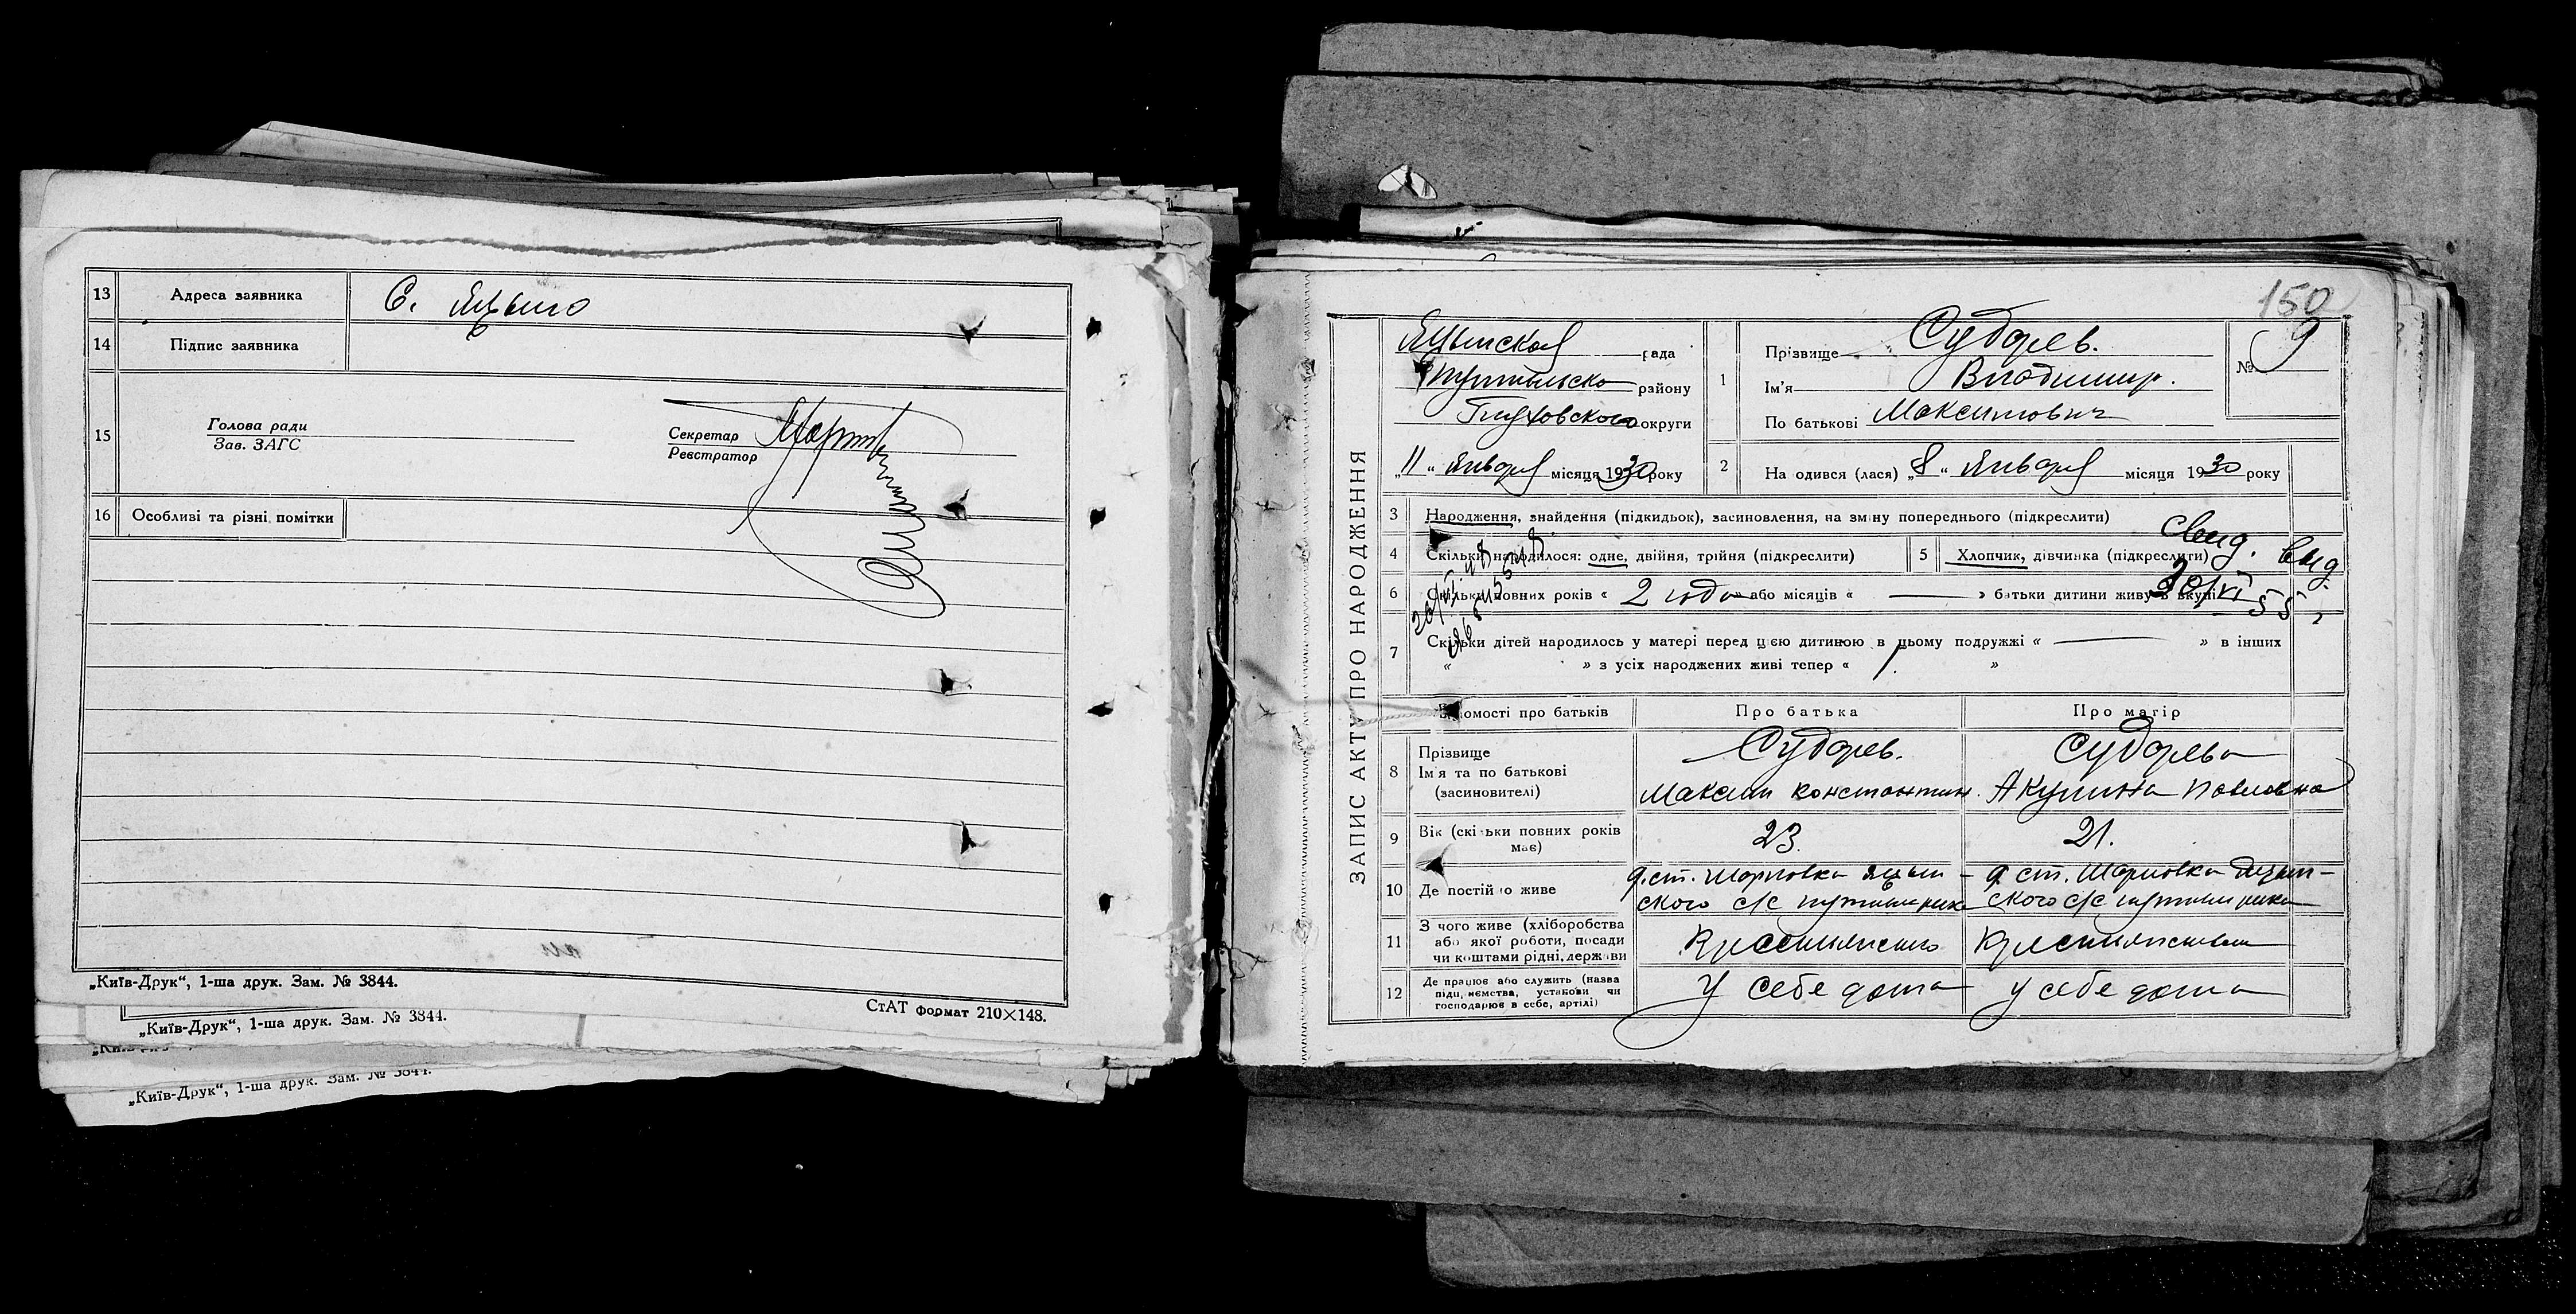 13 Адреса заявника С. Яцыно
14 Підпис заявника
15 Голова ради
Зав. ЗАГС
Секретар
Реєстратор
16 Особливі та різні помітки
„Київ-Друк“, 1-ша друк. Зам. № 3844.
СтАТ формат 210×148.
„Київ-Друк“, 1-ша друк. Зам. № 3844.
„Київ-Друк“, 1-ша друк. Зам. № 3844.
150
ЗАПИС АКТУ ПРО НАРОДЖЕННЯ
Яцынская рада
Путивльско району
Глуховского округи
„11“ Января місяця 1930 року
1 Прізвище Суборев.
Ім’я Владимир.
По батькові Максимович
№ 9
2 На одився (лася) „8“ Января місяця 1930 року
3 Народження, знайдення (підкидьок), засиновлення, на зміну попереднього (підкреслити)
4 Скільки народилося: одне, двійня, трійня (підкреслити)
5 Хлопчик, дівчинка (підкреслити)
Свид. выд.
20/VI 55 г
6 Скільки повних років « 2 года » або місяців « — » батьки дитини живуть вкупі
7 Скільки дітей народилось у матері перед цією дитиною в цьому подружжі « — » в інших
« » з усіх народжених живі тепер « 1. »
Відомості про батьків Про батька Про матір
8 Прізвище Суборев. Суборева
Ім’я та по батькові
(засиновителі) Максим Константин. Акулина Павловна
9 Вік (скільки повних років має) 23. 21.
10 Де постійно живе д.ст. Шарповка Яцын- д ст. Шарповка Яцын-
ского с/с путивл рика ского с/с путивл рика
11 З чого живе (хліборобства
або якої роботи, посади
чи коштами рідні, держави Крестьянство Крестьянством
12 Де працює або служить (назва
підприємства, установи чи
господарює в себе, артілі) У себе дома у себе дома